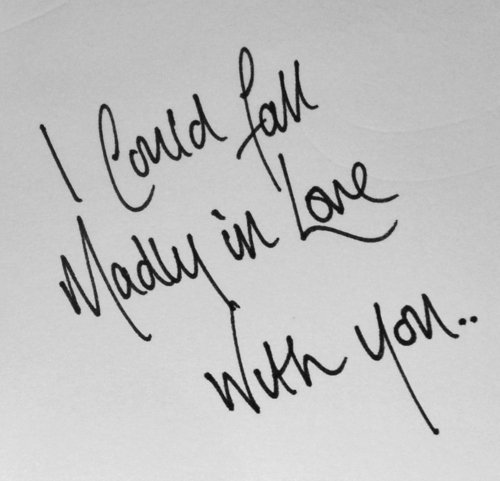 I Could fall
Madly in Love
With you..